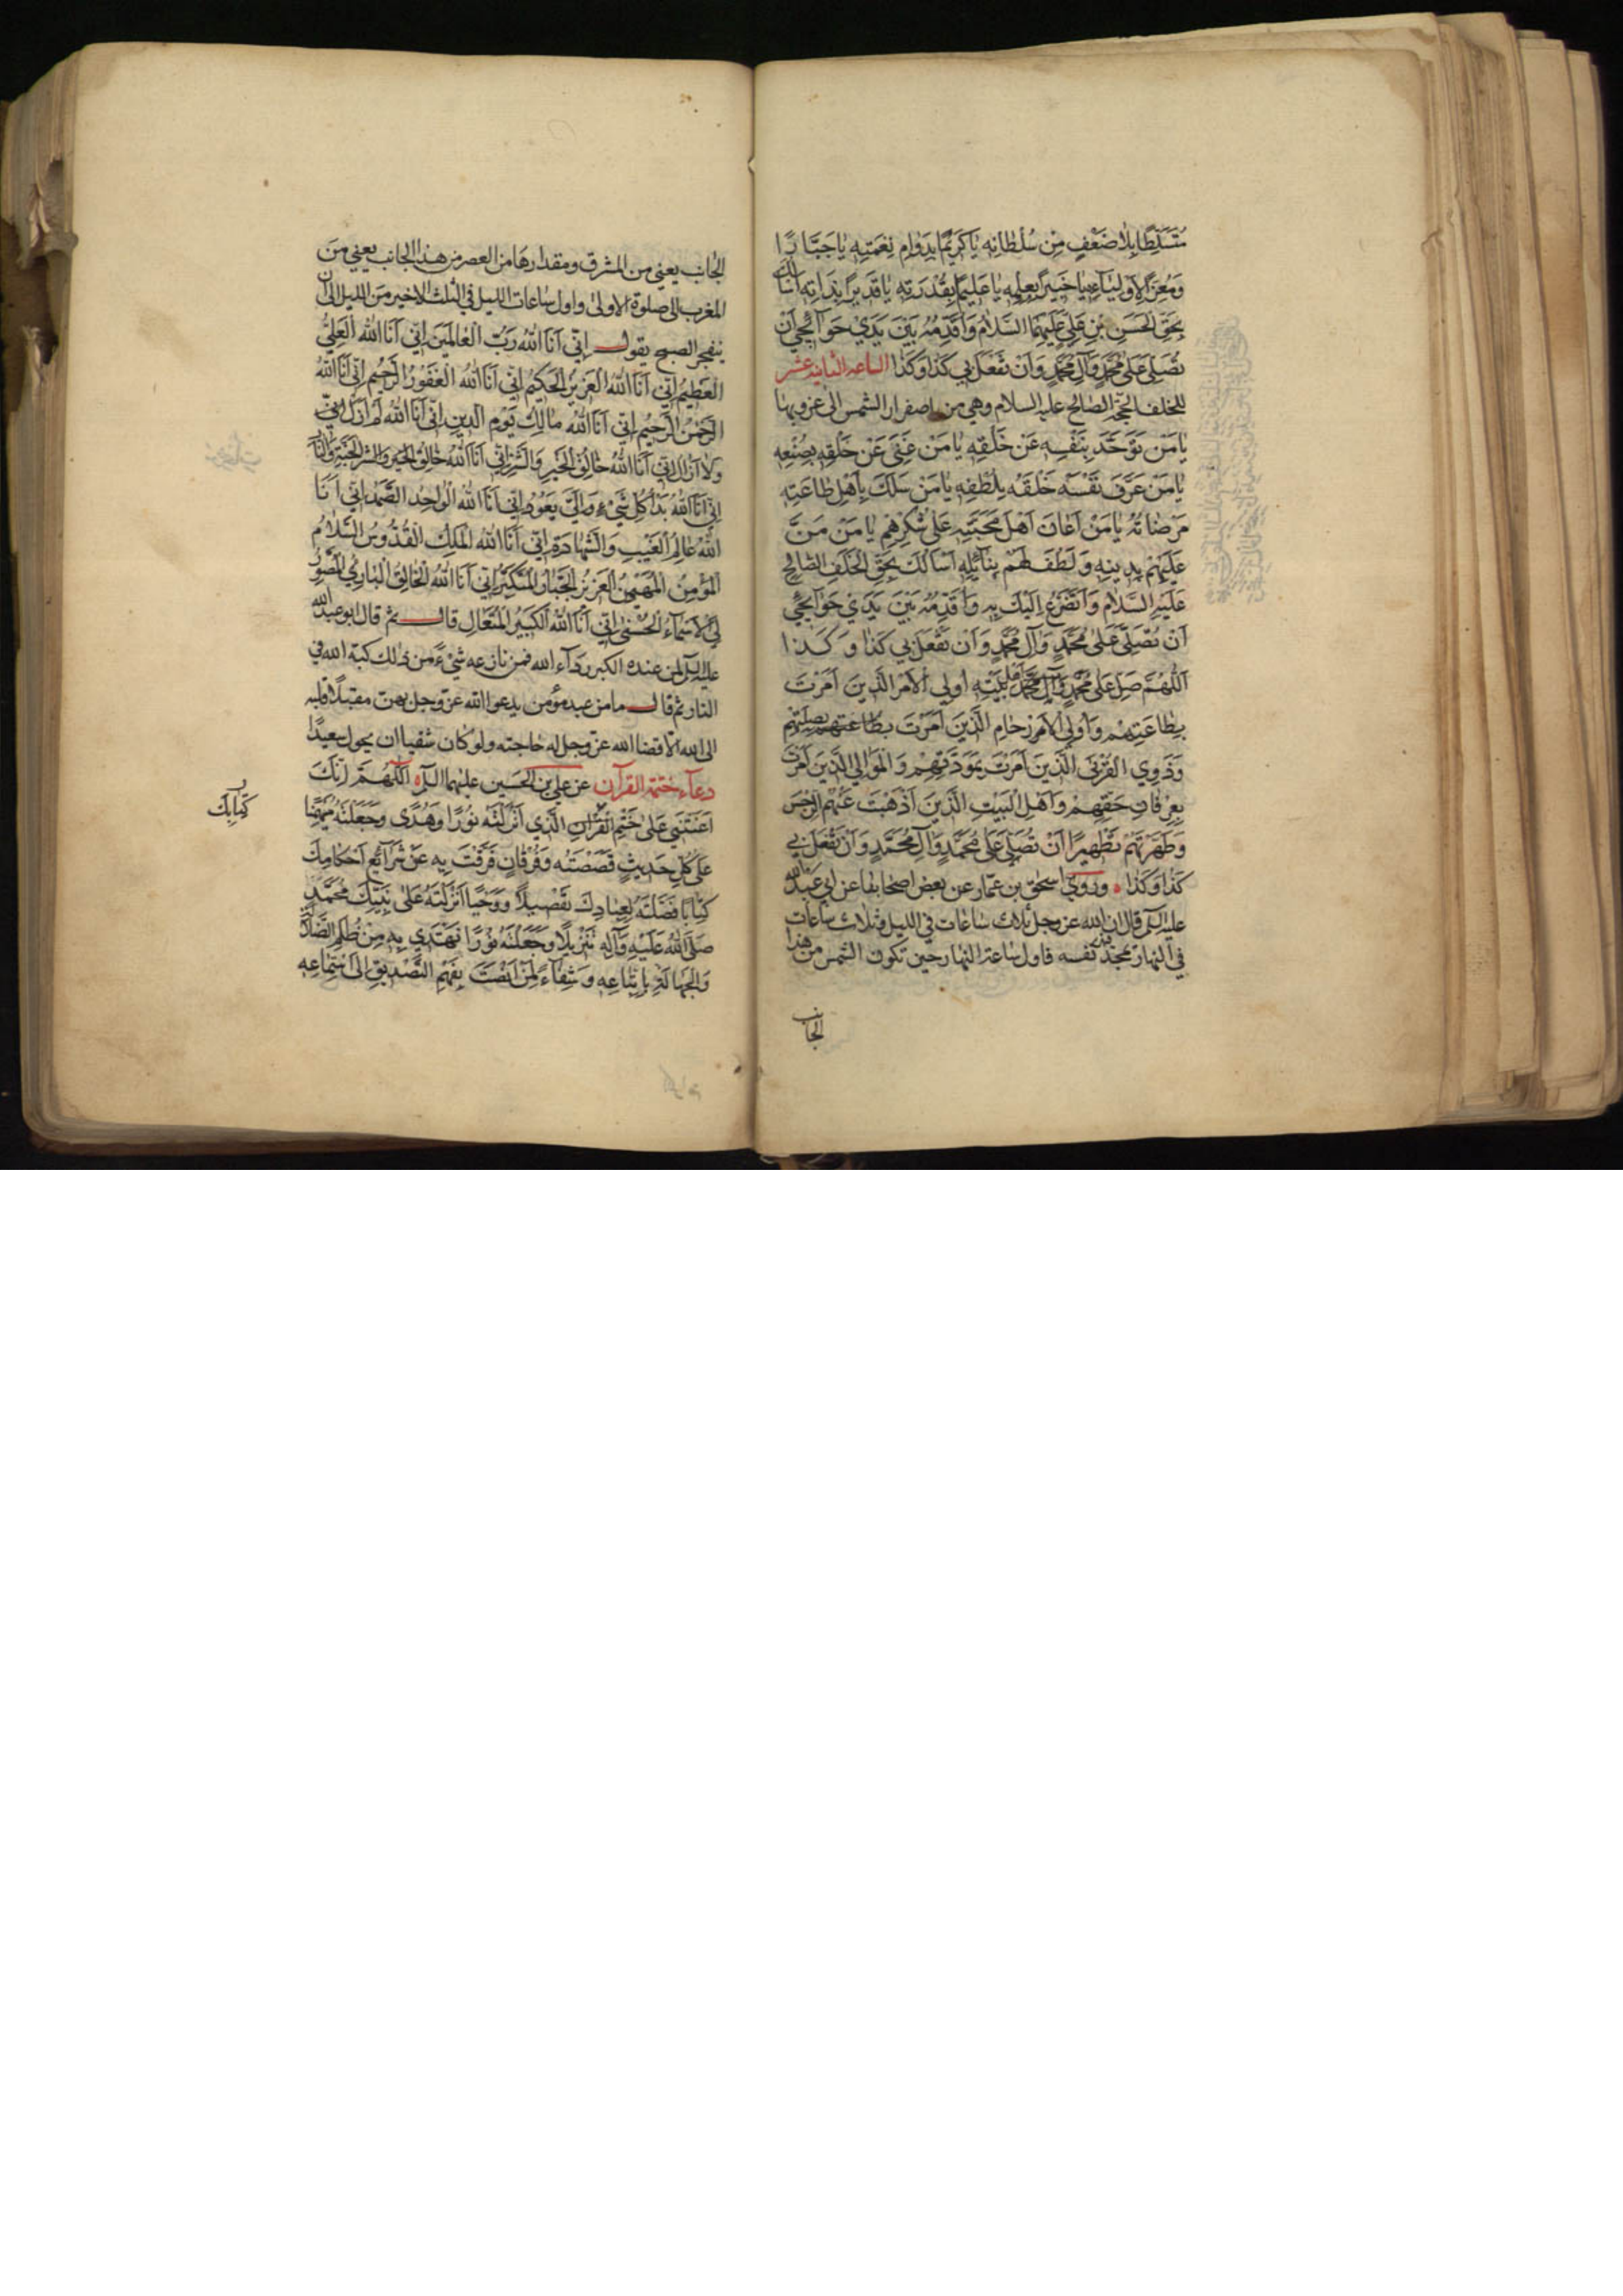 مُتَسَلِّطًا بِلَا ضَعْفٍ مِنْ سُلْطَانِهِ يَا كَرِيمًا بِدَوَامِ نِعْمَتِهِ يَا جَبَّارًا
وَمُعِزَّ الْأَوْلِيَاءِ يَا خَبِيرًا بِعِلْمِهِ يَا عَلِيمًا بِقُدْرَتِهِ يَا قَدِيرًا بِذَاتِهِ أَسْأَلُكَ
بِحَقِّ الْحَسَنِ بْنِ عَلِيٍّ عَلَيْهِمَا السَّلَامُ وَأُقَدِّمُهُ بَيْنَ يَدَيْ حَوَائِجِي أَنْ
تُصَلِّيَ عَلَى مُحَمَّدٍ وَآلِ مُحَمَّدٍ وَأَنْ تَفْعَلَ بِي كَذَا وَكَذَا الساعة الثانية عشر
للخلف الحجة الصالح عليه السلام وهي من اصفرار الشمس الى غروبها
يَا مَنْ تَوَحَّدَ بِنَفْسِهِ عَنْ خَلْقِهِ يَا مَنْ غَنِيَ عَنْ خَلْقِهِ بِصُنْعِهِ
يَا مَنْ عَرَّفَ نَفْسَهُ خَلْقَهُ بِلُطْفِهِ يَا مَنْ سَلَكَ بِأَهْلِ طَاعَتِهِ
مَرْضَاتَهُ يَا مَنْ أَعَانَ أَهْلَ مَحَبَّتِهِ عَلَى شُكْرِهِمْ يَا مَنْ مَنَّ
عَلَيْهِمْ بِدِينِهِ وَلَطَفَ لَهُمْ بِنَائِلِهِ أَسْأَلُكَ بِحَقِّ الْخَلَفِ الصَّالِحِ
عَلَيْهِ السَّلَامُ وَأَتَضَرَّعُ إِلَيْكَ بِهِ وَأُقَدِّمُهُ بَيْنَ يَدَيْ حَوَائِجِي
أَنْ تُصَلِّيَ عَلَى مُحَمَّدٍ وَآلِ مُحَمَّدٍ وَأَنْ تَفْعَلَ بِي كَذَا وَكَذَا
اَللّٰهُمَّ صَلِّ عَلَى مُحَمَّدٍ وَآلِ مُحَمَّدٍ أَهْلِ بَيْتِهِ أُولِي الْأَمْرِ الَّذِينَ أَمَرْتَ
بِطَاعَتِهِمْ وَأُولِي الْأَرْحَامِ الَّذِينَ أَمَرْتَ بِصِلَتِهِمْ
وَذَوِي الْقُرْبَى الَّذِينَ أَمَرْتَ بِمَوَدَّتِهِمْ وَالْمَوَالِي الَّذِينَ أَمَرْتَ
بِعِرْفَانِ حَقِّهِمْ وَأَهْلِ الْبَيْتِ الَّذِينَ أَذْهَبْتَ عَنْهُمُ الرِّجْسَ
وَطَهَّرْتَهُمْ تَطْهِيرًا أَنْ تُصَلِّيَ عَلَى مُحَمَّدٍ وَآلِ مُحَمَّدٍ وَأَنْ تَفْعَلَ بِي
كَذَا وَكَذَا وروى اسحق بن عمار عن بعض اصحابنا عن ابي عبد الله
عليه السلم قال ان الله عز وجل ثلاث ساعات في الليل وثلاث ساعات
في النهار يمجد فيهن نفسه فاول ساعات النهار حين تكون الشمس من هذا
الجانب
الجانب يعني من المشرق ومقدارها من العصر من هذا الجانب يعني من
المغرب الى صلوة الاولى واول ساعات الليل في الثلث الاخير من الليل الى ان
ينفجر الصبح يقول اِنِّي اَنَا اللّٰهُ رَبُّ الْعَالَمِينَ اِنِّي اَنَا اللّٰهُ الْعَلِيُّ
الْعَظِيمُ اِنِّي اَنَا اللّٰهُ الْعَزِيزُ الْحَكِيمُ اِنِّي اَنَا اللّٰهُ الْغَفُورُ الرَّحِيمُ اِنِّي اَنَا اللّٰهُ
الرَّحْمٰنُ الرَّحِيمُ اِنِّي اَنَا اللّٰهُ مَالِكُ يَوْمِ الدِّينِ اِنِّي اَنَا اللّٰهُ لَمْ اَزَلْ
وَلَا اَزَالُ اِنِّي اَنَا اللّٰهُ خَالِقُ الْخَيْرِ وَالشَّرِّ اِنِّي اَنَا اللّٰهُ خَالِقُ الْجَنَّةِ وَالنَّارِ
اِنِّي اَنَا اللّٰهُ بَدَأَ كُلُّ شَيْءٍ وَاِلَيَّ يَعُودُ اِنِّي اَنَا اللّٰهُ الْوَاحِدُ الصَّمَدُ اِنِّي اَنَا
اللّٰهُ عَالِمُ الْغَيْبِ وَالشَّهَادَةِ اِنِّي اَنَا اللّٰهُ الْمَلِكُ الْقُدُّوسُ السَّلَامُ
الْمُؤْمِنُ الْمُهَيْمِنُ الْعَزِيزُ الْجَبَّارُ الْمُتَكَبِّرُ اِنِّي اَنَا اللّٰهُ الْخَالِقُ الْبَارِئُ الْمُصَوِّرُ
لِيَ الْاَسْمَاءُ الْحُسْنَى اِنِّي اَنَا اللّٰهُ الْكَبِيرُ الْمُتَعَالِ قال ثم قال ابو عبد الله
عليه السلم من عنده الكبر رداء الله فمن نازعه شيء من ذلك كبه الله في
النار ثم قال ما من عبد مؤمن يدعوا الله عز وجل بهن مقبلا قلبه
الى الله الا قضا الله عز وجل له حاجته ولو كان شقيا ان يحول سعيدا
دعاء ختمة القرآن عن علي بن الحسين عليهما السلم اَللّٰهُمَّ اِنَّكَ
اَعَنْتَنِي عَلَى خَتْمِ الْقُرْآنِ الَّذِي اَنْزَلْتَهُ نُورًا وَهُدًى وَجَعَلْتَهُ مُهَيْمِنًا
كِتَابِكَ
عَلَى كُلِّ حَدِيثٍ قَصَصْتَهُ وَفُرْقَانٍ فَرَقْتَ بِهِ عَنْ شَرَائِعِ اَحْكَامِكَ
كِتَابًا فَصَّلْتَهُ لِعِبَادِكَ تَفْصِيلًا وَوَحْيًا اَنْزَلْتَهُ عَلَى نَبِيِّكَ مُحَمَّدٍ
صَلَّى اللّٰهُ عَلَيْهِ وَآلِهِ تَنْزِيلًا وَجَعَلْتَهُ نُورًا نَهْتَدِي بِهِ مِنْ ظُلَمِ الضَّلَالَةِ
وَالْجَهَالَةِ بِاتِّبَاعِهِ وَشِفَاءً لِمَنْ اَنْصَتَ بِفَهْمِ التَّصْدِيقِ اِلَى اسْتِمَاعِهِ